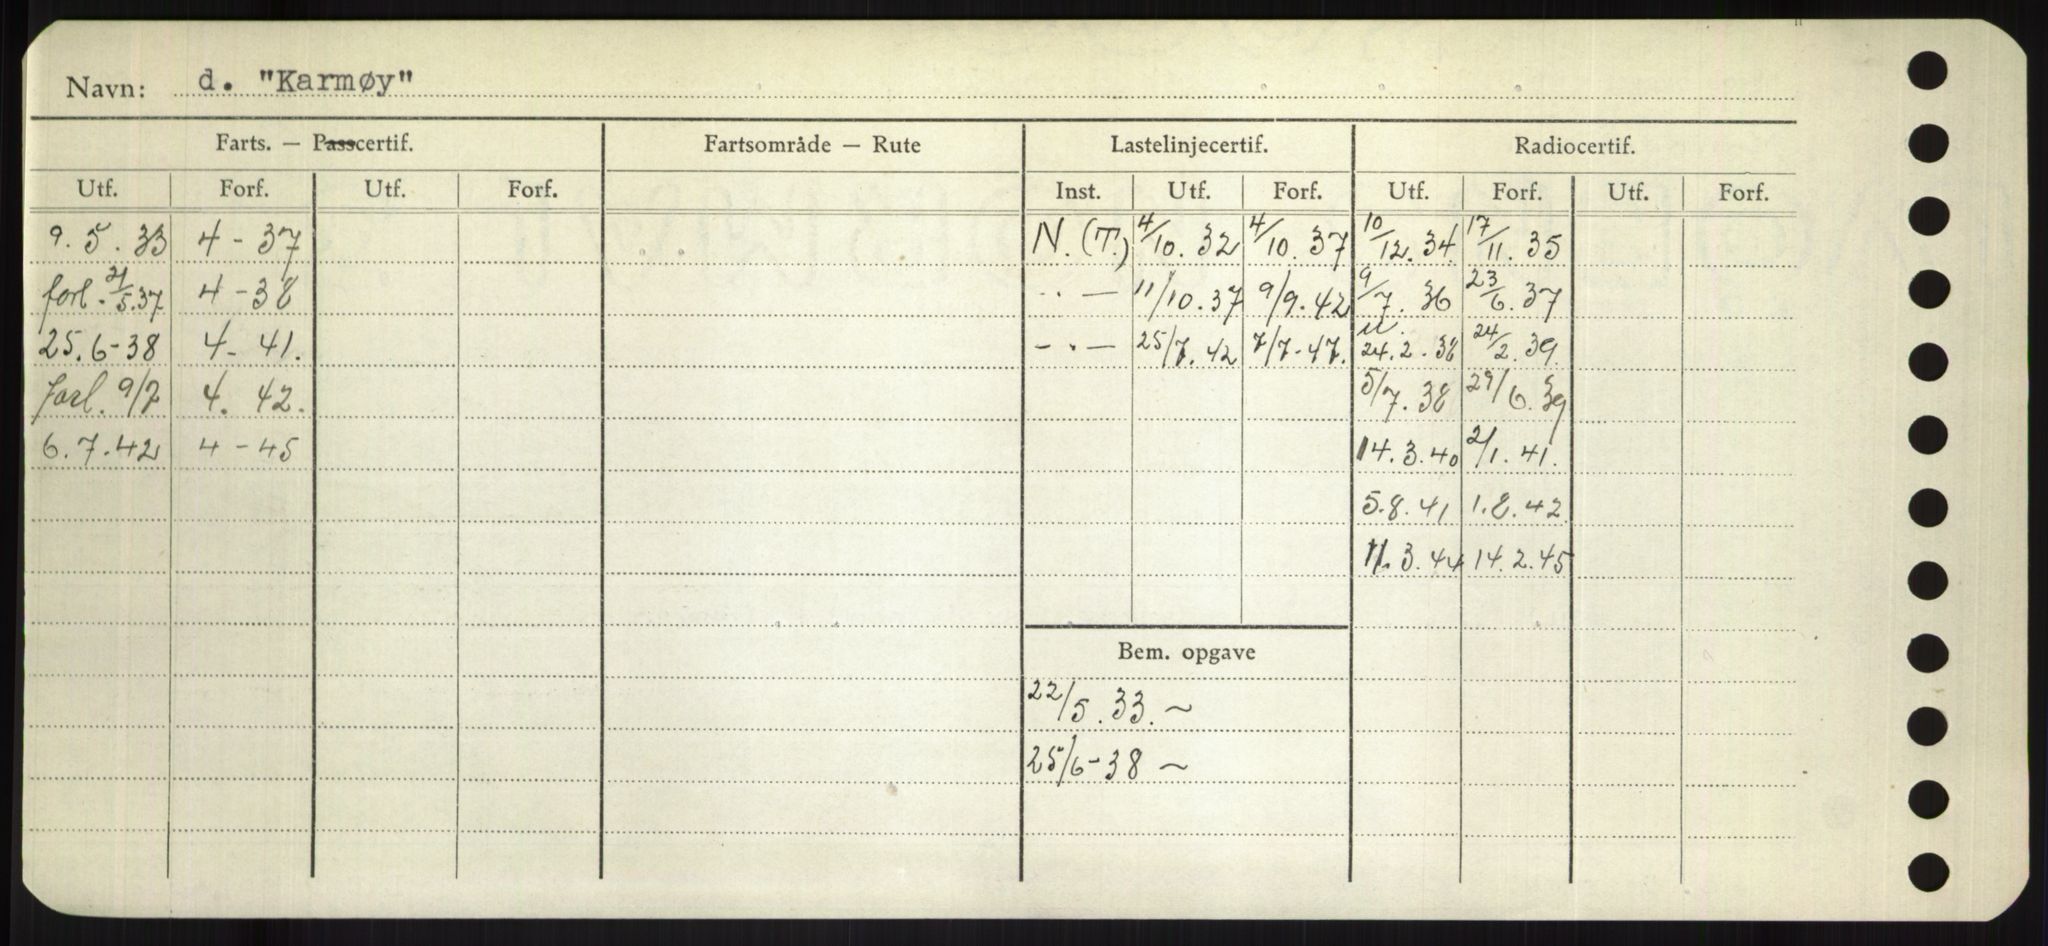 Navn: d. "Karmøy"
Farts. — Passcertif. Fartsområde — Rute Lastelinjecertif. Radiocertif.
Utf. Forf. Utf. Forf. Inst. Utf. Forf. Utf. Forf. Utf. Forf.
9. 5. 33 4 - 37 N. (T.) 4/10. 32 4/10. 37 10/12. 34. 17/11. 35
forl. 21/5.37 4 - 38 - . — 11/10. 37 9/9. 42 9/7. 36 23/6. 37
25. 6 - 38 4 - 41. — . — 25/7. 42 7/7 - 47. 24. 2. 38 24/2. 39
forl. 9/7 4. 42. 5/7. 38 29/6. 39
6. 7. 42 4 - 45 14. 3. 40 2/1. 41.
5. 8. 41 1. 8. 42
11. 3. 44 14. 2. 45
Bem. opgave
22/5. 33. ~
25/6 - 38 ~